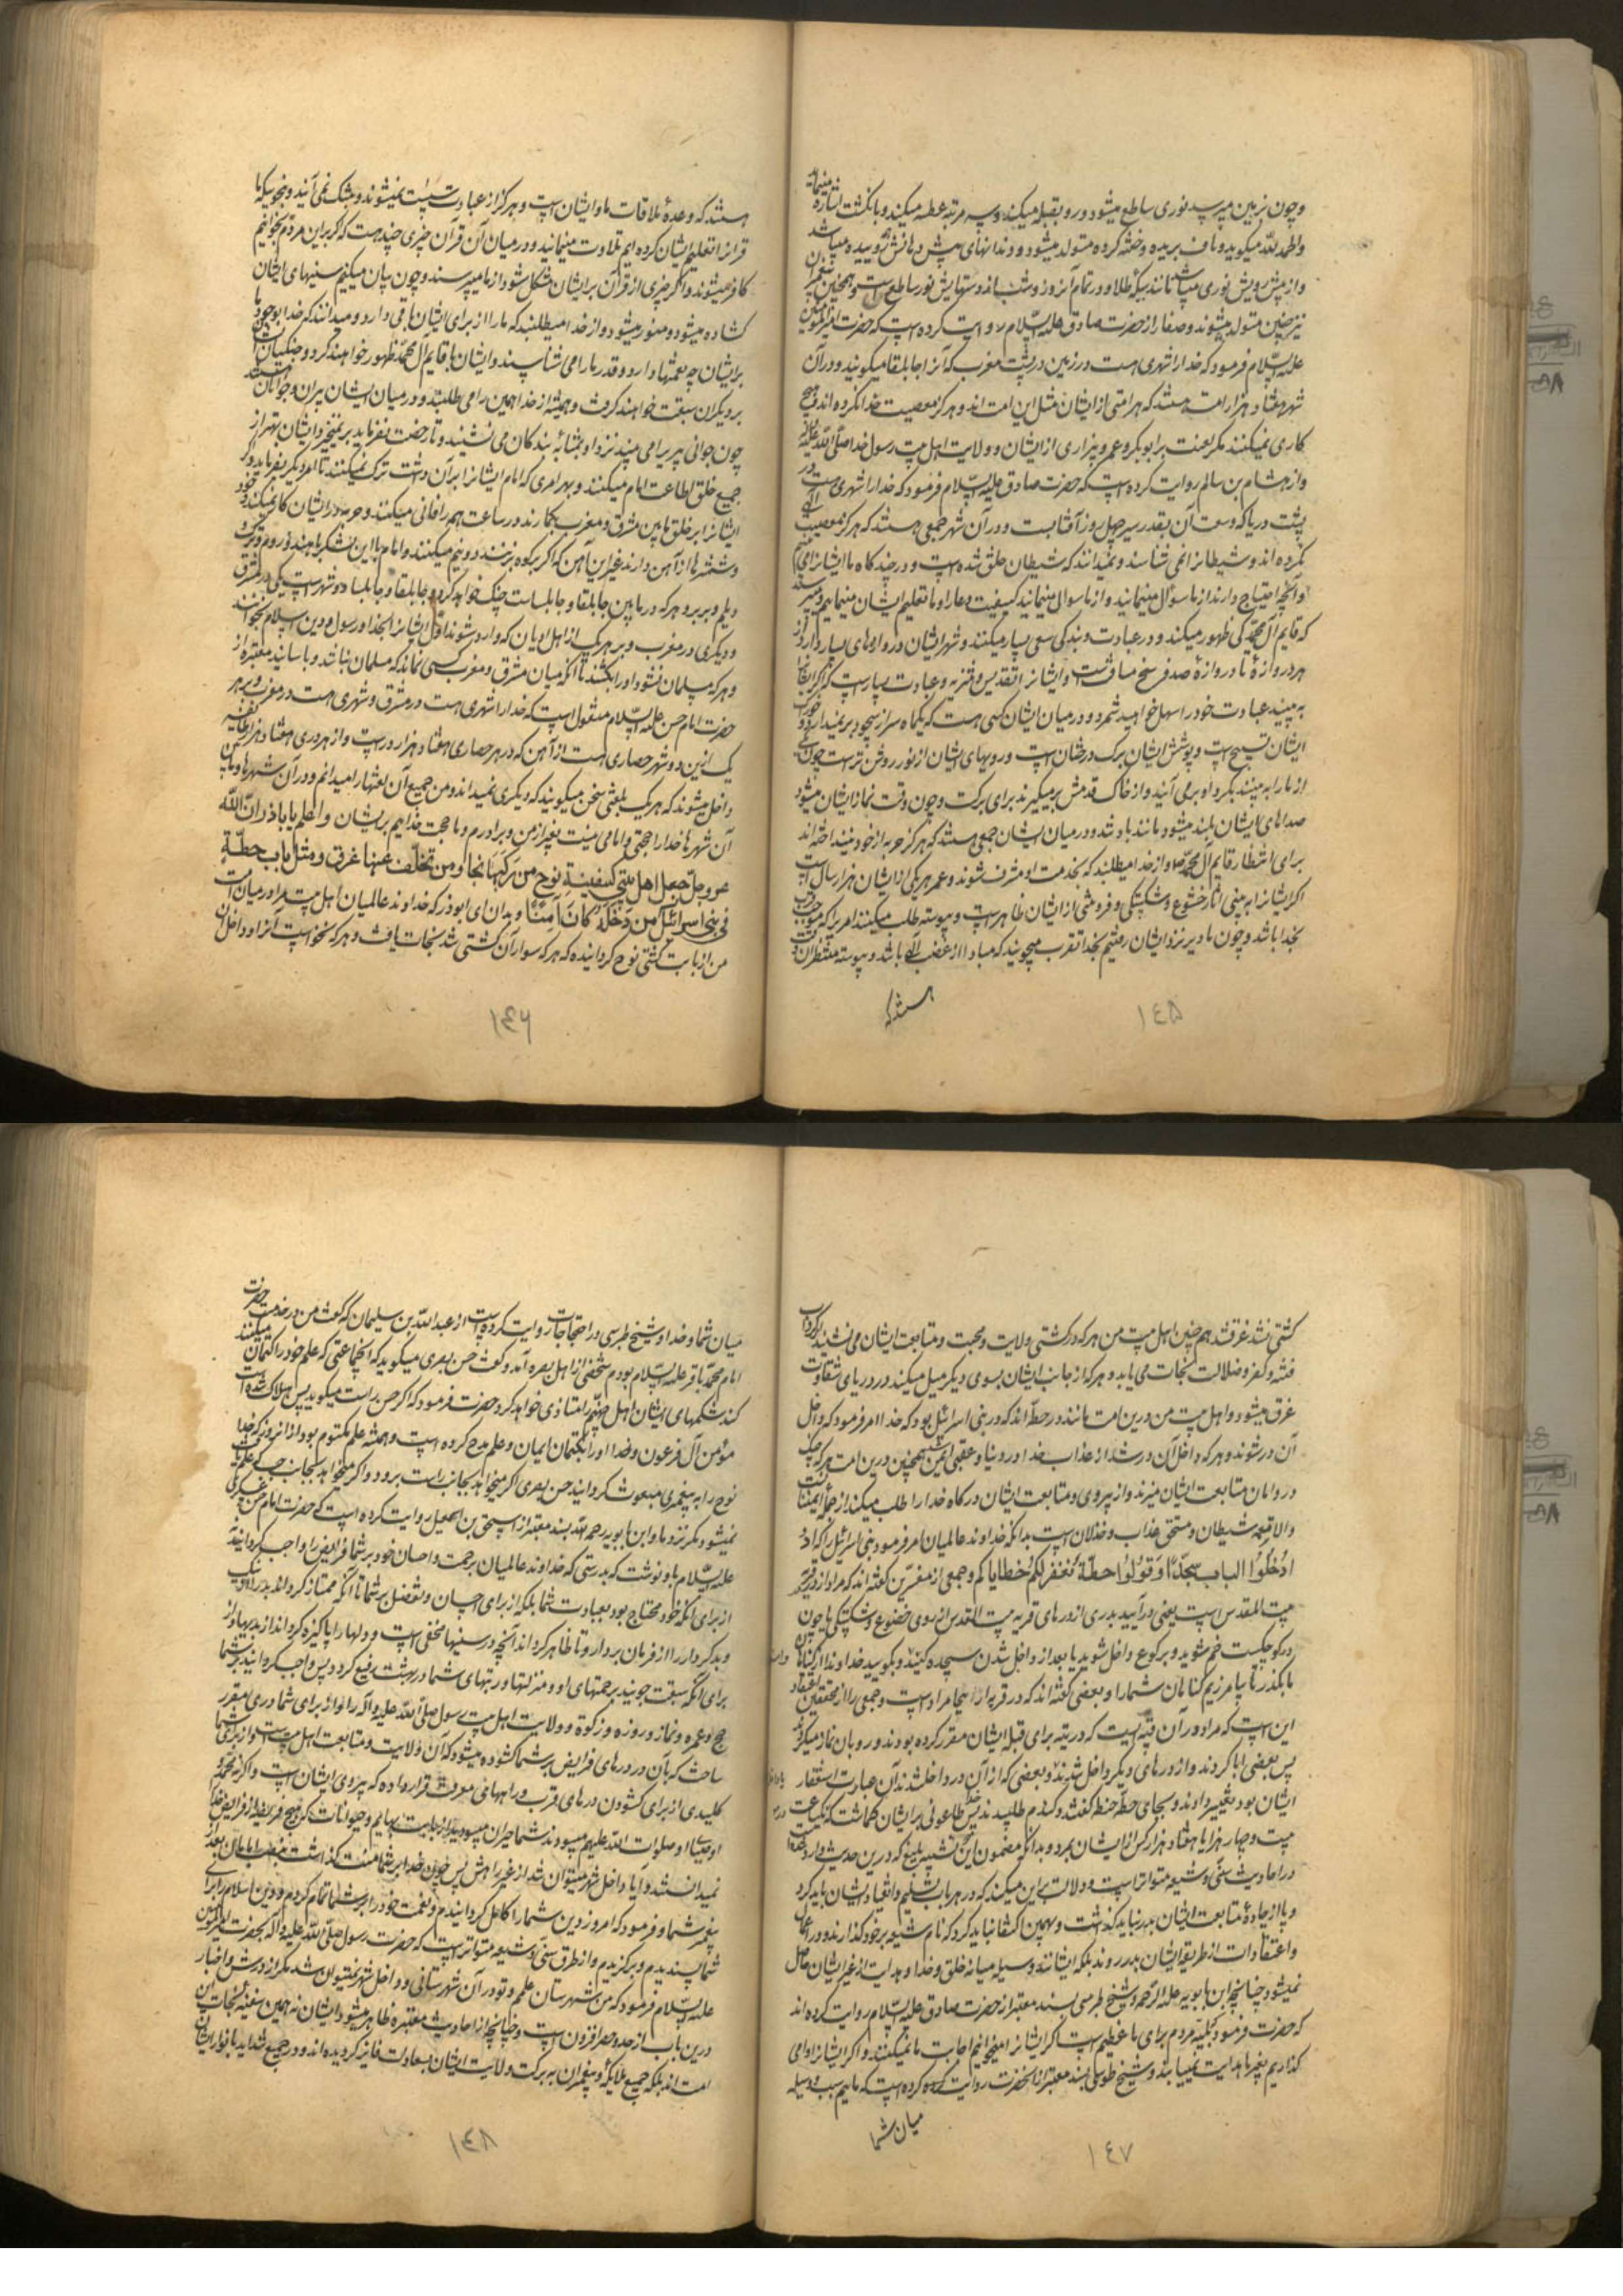 وچون بزمین میرسد نوری ساطع میشود و رو بقبله میکند و سه مرتبه عطسه میکند و بانگشت اشاره مینماید
والحمد لله میکوید و ناف بریده و ختنه کرده متولد میشود و دندانهای پیش دهانش روییده میباشد
و از پیش رویش نوری میباشد مانند سبیکه طلا و در تمام آنروز و شب از دستهایش نور ساطع است و همچنین پیغمبران
نیز چنین متولد میشوند و صفار از حضرت صادق علیه السلام روایت کرده است که حضرت امیرالمومنین
علیه السلام فرمود که خدا را شهری هست در زمین در پشت مغرب که آنرا جابلقا میکویند و در آن
شهر هفتاد هزار امت هستند که هر امتی از ایشان مثل این امت اند و هرکز معصیت خدا نکرده اند و هیچ
کاری نمیکنند مکر لعنت بر ابوبکر و عمر و بیزاری از ایشان و ولایت اهل بیت رسول خدا صلی الله علیه وآله
و از هشام بن سالم روایت کرده است که حضرت صادق علیه السلام فرمود که خدا را شهری هست در
پشت دریا که وسعت آن بقدر سیر چهل روز آفتابست و در آن شهر جمعی هستند که هرکز معصیت الهی
نکرده اند و شیطانرا نمی شناسند و نمیدانند که شیطان خلق شده است و در چند کاه ما ایشانرا می بینیم
و آنچه احتیاج دارند از ما سوال مینمایند و از ما سوال مینمایند کیفیت دعا را و ما تعلیم ایشان مینماییم و میپرسند
که قایم آل محمد کی ظهور میکند و در عبادت و بندکی سعی بسیار میکنند و شهر ایشان دروازهای بسیار دارد از
هر دروازۀ تا دروازۀ صد فرسخ مسافتست و ایشانرا تقدیس و تنزیه و عبادت بسیارست اکر ایشانرا
به بینید عبادت خود را سهل خواهید شمرد و در میان ایشان کسی هست که یکماه سر از سجود بر نمیدارد و خوراک
ایشان تسبیح است و پوشش ایشان برک درختان است و رویهای ایشان از نور روشن تر است چون یکی
از ما را به بینند بکرد او بر می آیند و از خاک قدمش بر میکیرند برای برکت و چون وقت نماز ایشان میشود
صداهای ایشان بلند میشود مانند باد تند و در میان ایشان جمعی هستند که هرکز حربه از خود نینداخته اند
برای انتظار قایم آل محمد و از خدا میطلبند که بخدمت او مشرف شوند و عمر هر یکی از ایشان هزار سال است
اکر ایشانرا به بینی آثار خشوع و شکستکی و فروتنی از ایشان ظاهر است و پیوسته طلب میکنند امریرا که موجب قرب
بخدا باشد و چون ما دیر نزد ایشان رفتیم بخدا تقرب میجویند که مبادا از غضب الهی باشد و پیوسته منتظر آن وقت
هستند که
١٤۵
هستند که وعدۀ ملاقات ما و ایشان است و هرکز از عبادت سست نمیشوند و بتنک نمی آیند و بنحویکه ما
قرآنرا تعلیم ایشان کرده ایم تلاوت مینمایند و در میان آن قرآن چیزی چند هست که اکر بر این مردم بخوانیم
کافر میشوند و اکر چیزی از قرآن بر ایشان مشکل شود از ما میپرسند و چون بیان میکنیم سینهای ایشان
کشاده میشود و منور میشود و از خدا میطلبند که ما را از برای ایشان باقی دارد و میدانند که خدا بوجود ما
بر ایشان چه نعمتها دارد و قدر ما را می شناسند و ایشان با قایم آل محمد ظهور خواهند کرد و جنکیان ایشان
بر دیکران سبقت خواهند کرفت و همیشه از خدا همین را می طلبند و در میان ایشان پیران و جوانان هستند
چون جوانی پیریرا می بیند نزد او بمثابۀ بندکان می نشیند و تا رخصت نفرماید بر نمیخیزد و ایشان بهتر از
جمیع خلق اطاعت امام میکنند و بهر امری که امام ایشانرا بر آن داشت ترک نمیکنند تا امر دیکر بفرماید و اکر
ایشانرا بر خلق ما بین مشرق و مغرب بکمارند در ساعت همه را فانی میکنند و حربه در ایشان کار نمیکند و خود
و شمشیرها از آهن دارند غیر این آهن که اکر بر کوه بزنند دو نیم میکنند و امام با این لشکر با هند و روم و ترک و
دیلم و بربر و هر که در ما بین جابلقا و جابلسا است جنک خواهد کرد و جابلقا و جابلسا دو شهر است یکی در مشرق
و دیکری در مغرب و بر هر یک از اهل ادیان که وارد شوند اول ایشانرا بخدا و رسول و دین اسلام بخوانند
و هر که مسلمان نشود او را بکشند تا آنکه میان مشرق و مغرب کسی نماند که مسلمان نباشد و باسانید معتبره از
حضرت امام حسن علیه السلام منقول است که خدا را شهری هست در مشرق و شهری هست در مغرب و بر هر
یک ازین دو شهر حصاری هست از آهن که در هر حصاری هفتاد هزار در است و از هر دری هفتاد هزار طایفه
داخل میشوند که هر یک بلغتی سخن میکویند که دیکری نمیداند و من جمیع آن لغتها را میدانم و در آن شهرها و ما بین
آن شهرها خدا را حجتی و امامی نیست بغیر از من و برادرم و ما حجت خداییم بر ایشان و اعلم یا باذر ان الله
عز وجل جعل اهل بیتی کسفینة نوح من رکبها نجا ومن تخلف عنها غرق ومثل باب حطة
فی بنی اسرائیل من دخله کان آمنا و بدان ای ابوذر که خداوند عالمیان اهل بیت مرا در میان امت
من از بابت کشتی نوح کردانیده که هر که سوار آن کشتی شد نجات یافت و هر که نخواست آنرا و داخل آن
١٤۶
کشتی نشد غرقشد همچنین اهل بیت من هر که در کشتی ولایت و محبت و متابعت ایشان می نشیند از کرداب
فتنه و کفر و ضلالت نجات می یابد و هر که از جانب ایشان بسوی دیکر میل میکند در دریای شقاوت
غرق میشود و اهل بیت من درین امت مانند در حطه اند که در بنی اسرائیل بود که خدا امر فرمود که داخل
آن در شوند و هر که داخل آن در شد از عذاب خدا در دنیا و عقبی ایمن شد همچنین درین امت هر که چنک
در دامان متابعت ایشان میزند و از پیروی و متابعت ایشان درکاه خدا را طلب میکند از جمله آمنانست
والا قبعه شیطان و مستحق عذاب و خذلان است بدانکه خداوند عالمیان امر فرمود بنی اسرائیل را که
ادخلوا الباب سجدا وقولوا حطة نغفر لکم خطایاکم و جمعی از مفسرین کفته اند که مراد از در قریه
بیت المقدس است یعنی در آیید بدری از درهای قریه بیت المقدس از روی خضوع و شکستکی یا چون
در کوچکیست خم شوید و برکوع داخل شوید یا بعد از داخل شدن سجده کنید و بکویید خداوندا از کناهان
ما بکذر تا بیامرزیم کناهان شما را و بعضی کفته اند که در قریه اریحا مراد است و جمعی را از محققین اعتقاد
این است که مراد در آن قبه ایست که در تیه برای قبله ایشان مقرر کرده بودند و رو بان نماز میکردند
پس بعضی ابا کردند و از درهای دیکر داخل شدند و بعضی که از آن در داخلشدند آن عبارت استغفار
ایشان بود تغییر دادند و بجای حطه حنطه کفتند و کندم طلبیدند پس خدا طاعونی بر ایشان کماشت که در یکساعت
بیست و چهار هزار یا هفتاد هزار کس از ایشان بمرد و بدانکه مضمون این تشبیه بلیغ که درین حدیث وارد شده
در احادیث سنی و شیعه متواتر است و دلالت برین میکند که در هر باب تسلیم و انقیاد ایشان باید کرد
و پا از جادۀ متابعت ایشان بدر نباید کذاشت و بهمین اکتفا نباید کرد که نام شیعه بر خود کذارند و در اعمال
و اعتقادات از طریقه ایشان بدر روند بلکه ایشانند وسیله میانه خلق و خدا و هدایت از غیر ایشان حاصل
نمیشود چنانچه ابن بابویه علیه الرحمه و شیخ طبرسی بسند معتبر از حضرت صادق علیه السلام روایت کرده اند
که حضرت فرمود بلیه مردم برای ما عظیم است اکر ایشانرا میخوانیم اجابت ما نمیکنند و اکر ایشانرا وامی
کذاریم بغیر ما هدایت نمییابند و شیخ طوسی بسند معتبر از آنحضرت روایت کرده است که ماییم سبب و وسیله
میان شما
١٤٧
میان شما و خدا و شیخ طبرسی در احتجاجات روایت کرده است از عبدالله بن سلیمان که کفت من در خدمت حضرت
امام محمد باقر علیه السلام بودم شخصی از اهل بصره آمد و کفت حسن بصری میکوید که آنجماعتی که علم خود را کتمان میکنند
کند شکمهای ایشان اهل جهنم را متاذی خواهد کرد حضرت فرمود که اکر حسن راست میکوید پس هلاک شده است
مؤمن آل فرعون و خدا او را بکتمان ایمان و علم مدح کرده است و همیشه علم مکتوم بود از آنروز که خدا
نوح را به پیغمبری مبعوث کردانید حسن بصری اکر میخواهد بجانب راست برود و اکر میخواهد بجانب چپ که علم یافت
نمیشود مکر نزد ما و ابن بابویه رحمه الله بسند معتبر از اسحق بن اسمعیل روایت کرده است که حضرت امام حسن عسکری
علیه السلام باو نوشت که بدرستی که خداوند عالمیان برحمت و احسان خود بر شما فرایض را واجب کردانید نه
از برای آنکه خود محتاج بود بعبادت شما بلکه از برای احسان و تفضل بر شما تا آنکه ممتاز کرداند بد را از نیک
و بد کردار را از فرمان بردار و تا ظاهر کرداند آنچه در سینها مخفی است و دلها را پاکیزه کرداند از بدیها و از
برای آنکه سبقت جویند برحمتهای او و منزلتها و رتبهای شما در بهشت رفیع کردد پس واجب کردانید بر شما
حج و عمره و نماز و روزه و زکوة و ولایت اهل بیت رسول صلی الله علیه وآله را و از برای شما دری مقرر
ساخت که بآن در درهای فرایض بر شما کشوده میشود که آن ولایت و متابعت اهل بیت است و از برای شما
کلیدی از برای کشودن درهای قرب و راههای معرفت قرار داده که پیروی ایشان است و اکر نه محمد و
اوصیای او صلوات الله علیهم میبودند شما حیران میبودید از بابت بهایم و حیوانات که هیچ فریضه از فرایض خدا
نمیدانستند و آیا داخل شهر میتوان شد از غیر راهش پس چون خدا بر شما منت کذاشت بنصب امامان بعد از
پیغمبر شما و فرمود که امروز دین شما را کامل کردانیدم و نعمت خود را بر شما تمام کردم و دین اسلام را برای
شما پسندیدم و برکزیدم و از طرق سنی و شیعه متواتر است که حضرت رسول صلی الله علیه وآله بحضرت امیرالمومنین
علیه السلام فرمود که من شهرستان علمم و تو در آن شهرستانی و داخل شهر نمیتوان شد مکر از درش و اخبار
درین باب از حد و حصر افزون است و چنانچه از احادیث معتبره ظاهر میشود ایشان نه همین سفینه نجات این
امت اند بلکه جمیع ملایکه و پیغمبران به برکت ولایت ایشان بسعادت فایز کردیده اند و در جمیع شداید بانوار ایشان
١٤٨